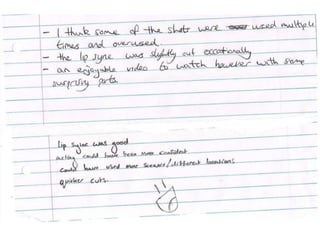 - I think some of the shots were over used multiple
times and overused.
- the lip sync was slightly out occationally
- an enjoyable video to watch however with some
suprising parts.
lip sync was good
acting could have been more confident
could have used more scenes/different locations
quicker cuts.